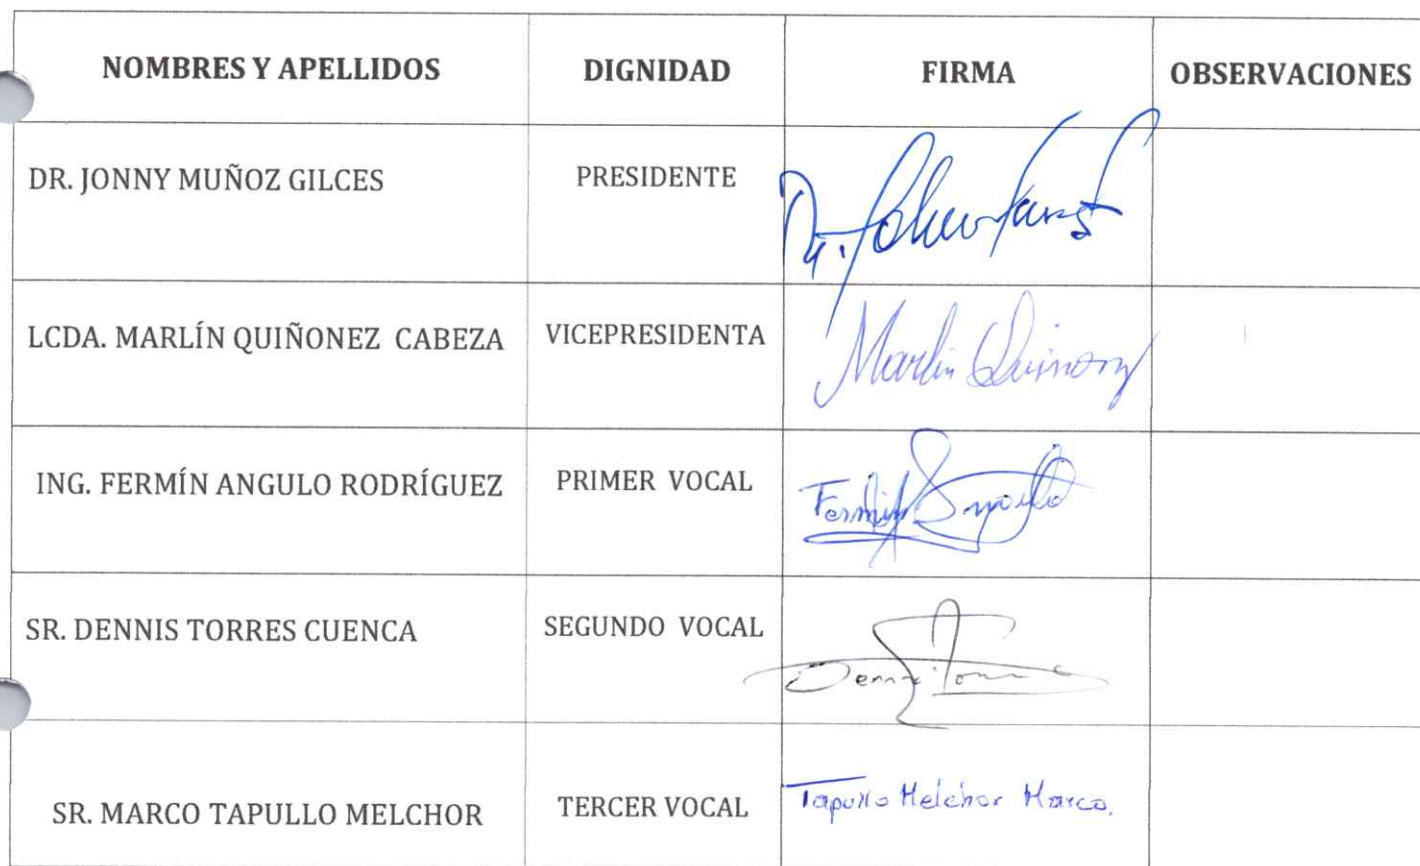 NOMBRES Y APELLIDOS DIGNIDAD FIRMA OBSERVACIONES
DR. JONNY MUÑOZ GILCES PRESIDENTE Dr.
LCDA. MARLÍN QUIÑONEZ CABEZA VICEPRESIDENTA Marlin Quinonz
ING. FERMÍN ANGULO RODRÍGUEZ PRIMER VOCAL Fermin Angulo
SR. DENNIS TORRES CUENCA SEGUNDO VOCAL
SR. MARCO TAPULLO MELCHOR TERCER VOCAL Tapullo Melchor Marco.